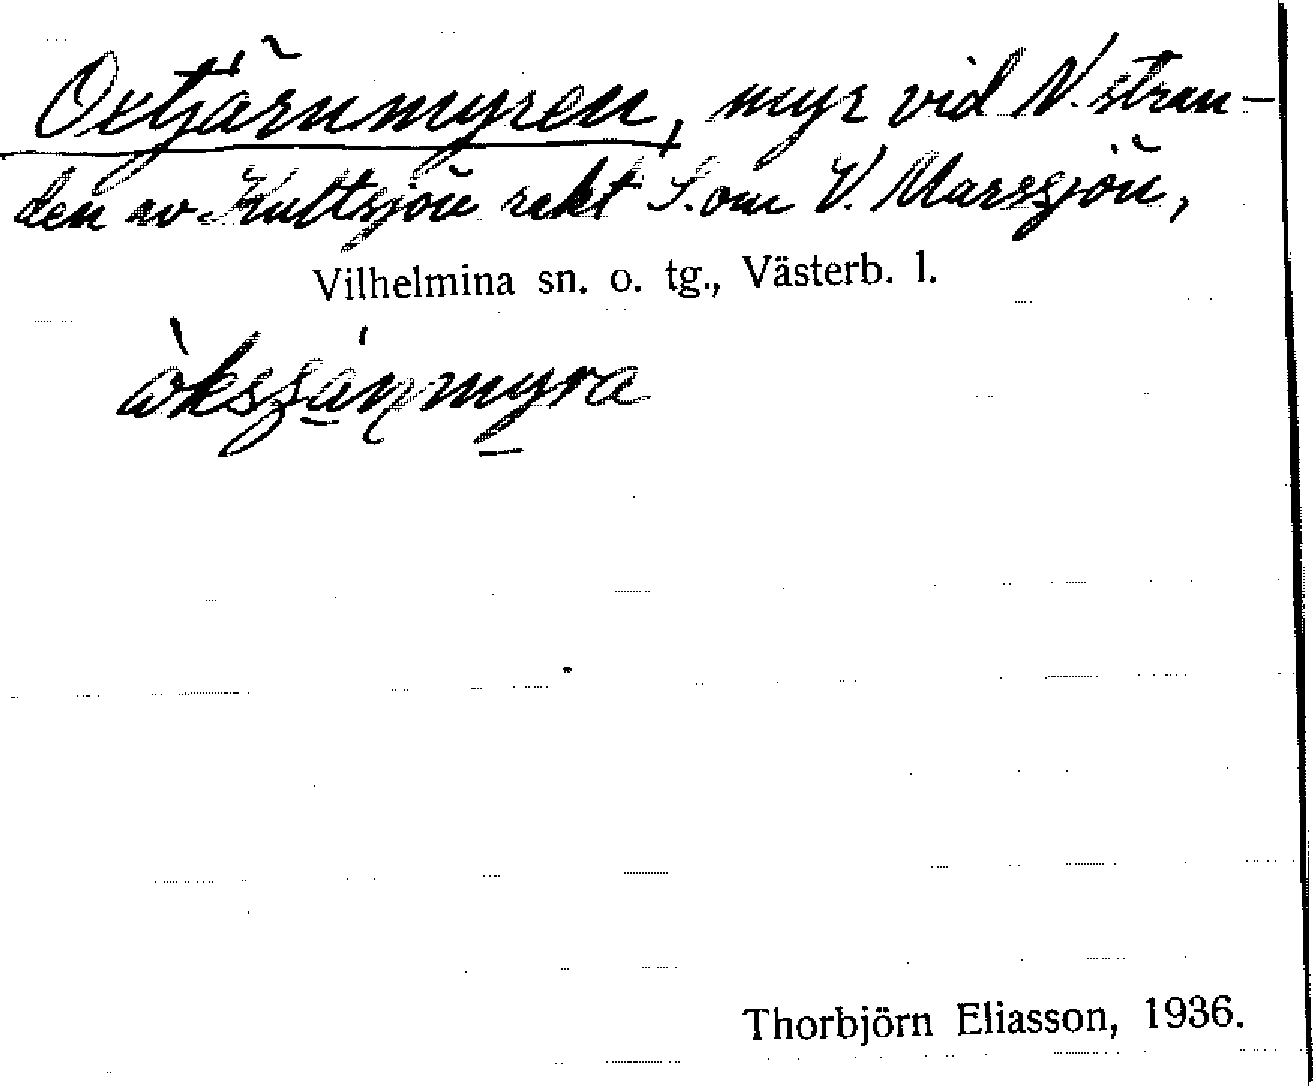 Oxtjärnmyren, myr vid N. stran-
den av Kultsjön rakt S. om V. Marssjön,
Vilhelmina sn. o. tg., Västerb. l.
Thorbjörn Eliasson, 1936.